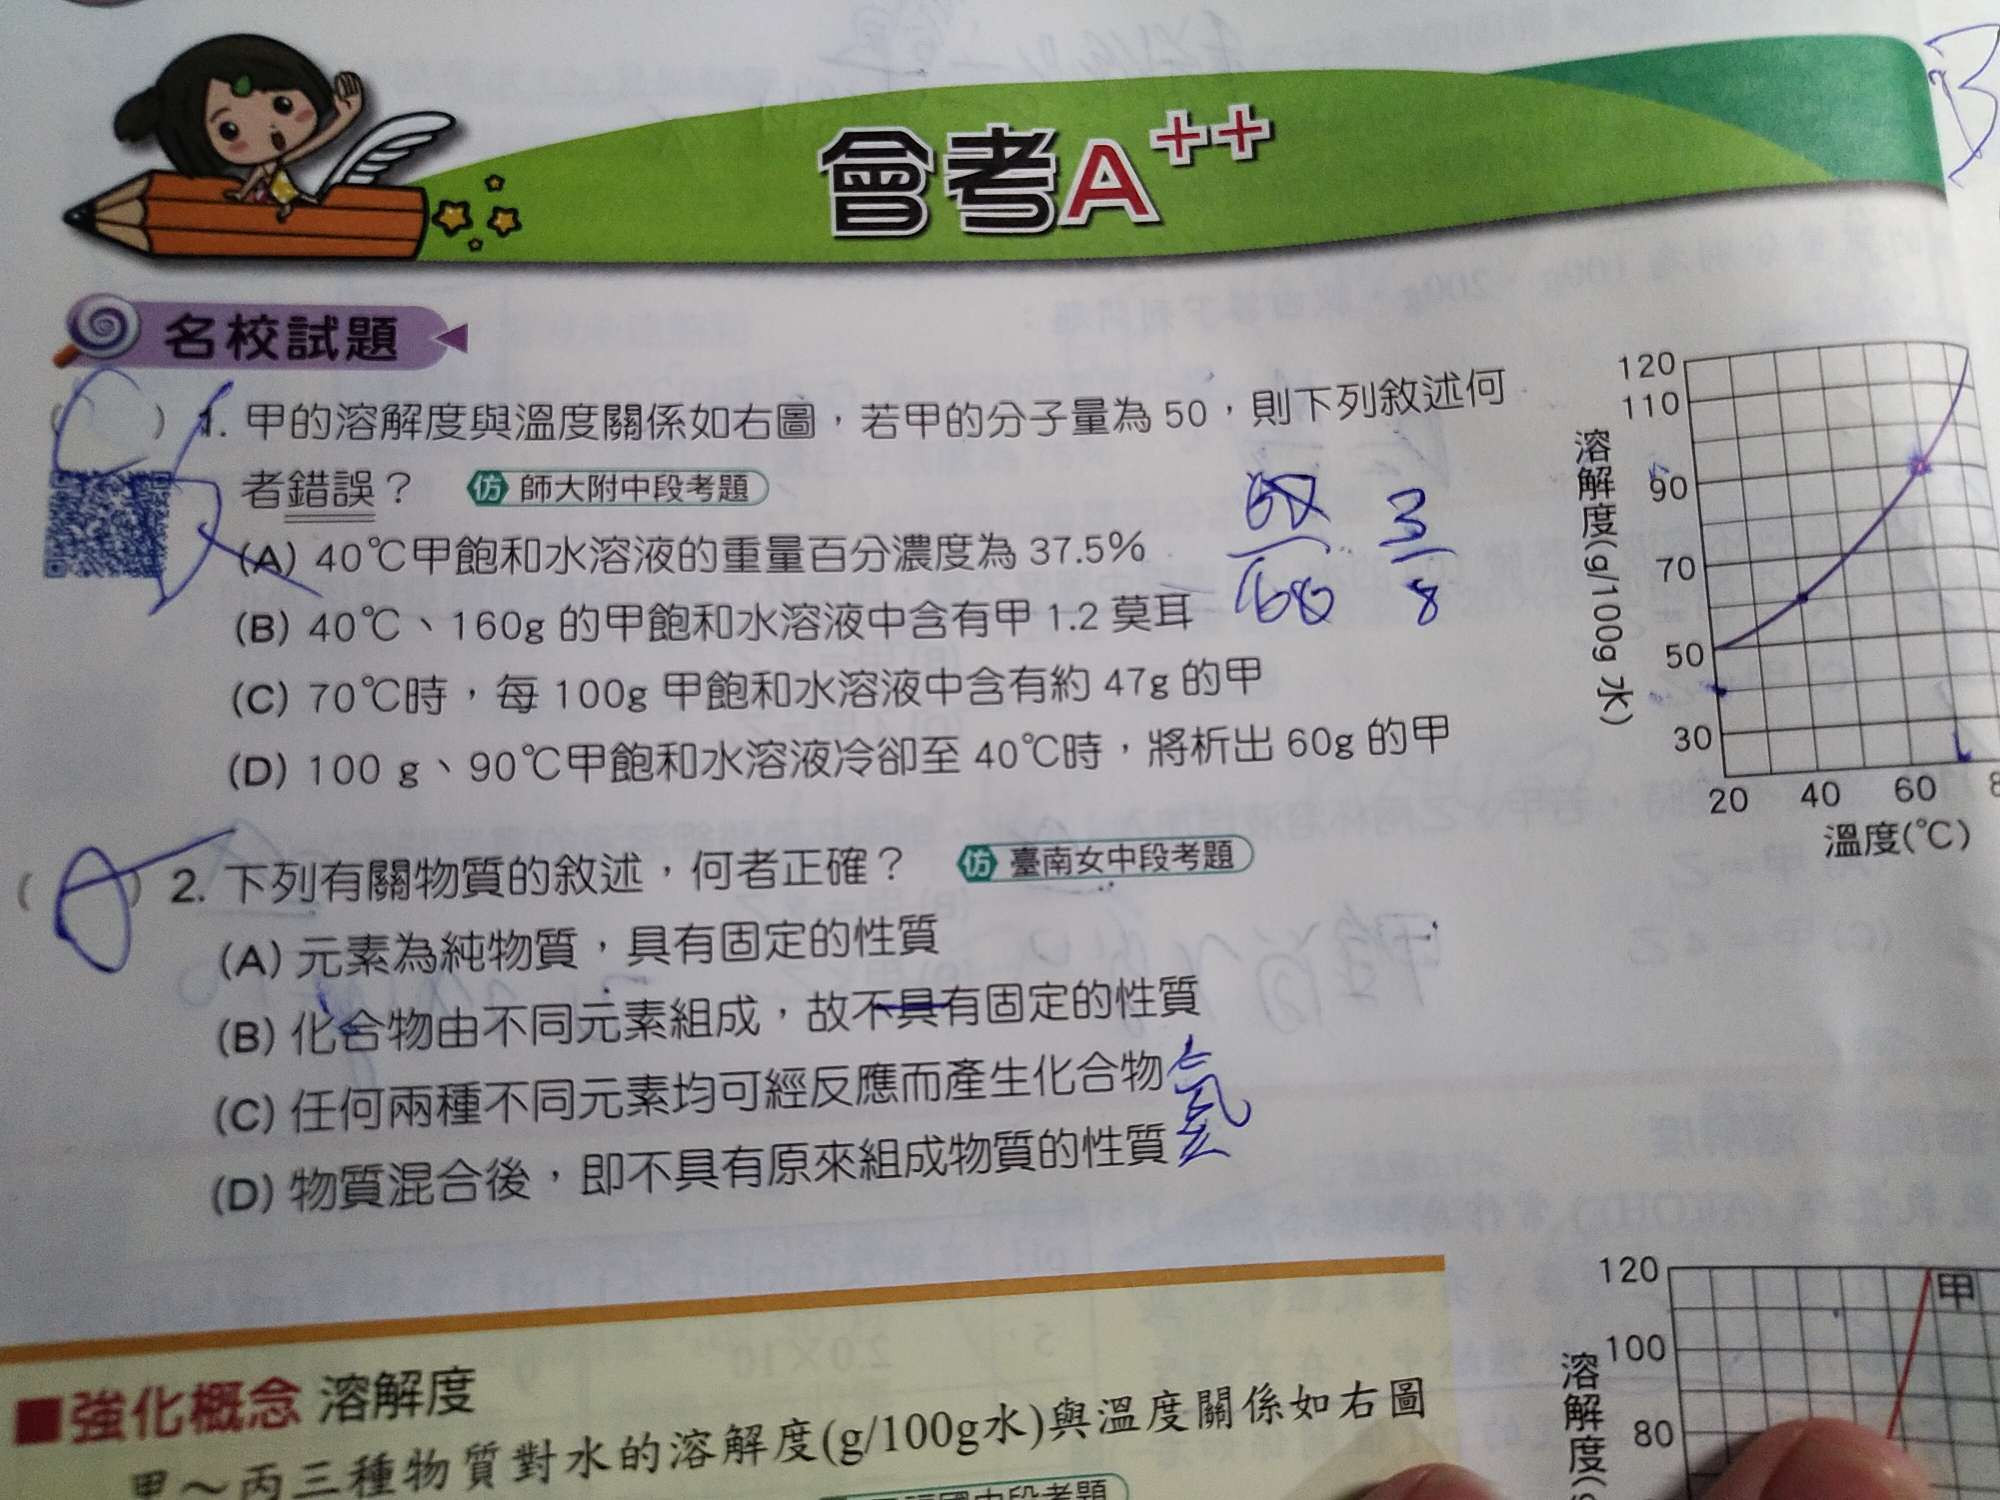 會考A++
名校試題
( ) 1. 甲的溶解度與溫度關係如右圖，若甲的分子量為 50，則下列敘述何
者錯誤？ 仿 師大附中段考題
(A) 40℃甲飽和水溶液的重量百分濃度為 37.5%
(B) 40℃、160g 的甲飽和水溶液中含有甲 1.2 莫耳
(C) 70℃時，每 100g 甲飽和水溶液中含有約 47g 的甲
(D) 100 g、90℃甲飽和水溶液冷卻至 40℃時，將析出 60g 的甲
160
3
8
120
110
90
70
50
30
溶解度(g/100g 水)
20 40 60 8
溫度(℃)
( ) 2. 下列有關物質的敘述，何者正確？ 仿 臺南女中段考題
(A) 元素為純物質，具有固定的性質
(B) 化合物由不同元素組成，故不具有固定的性質
(C) 任何兩種不同元素均可經反應而產生化合物
(D) 物質混合後，即不具有原來組成物質的性質
■強化概念 溶解度
甲～丙三種物質對水的溶解度(g/100g水)與溫度關係如右圖
國中段考題
120
100
80
甲
溶解度(